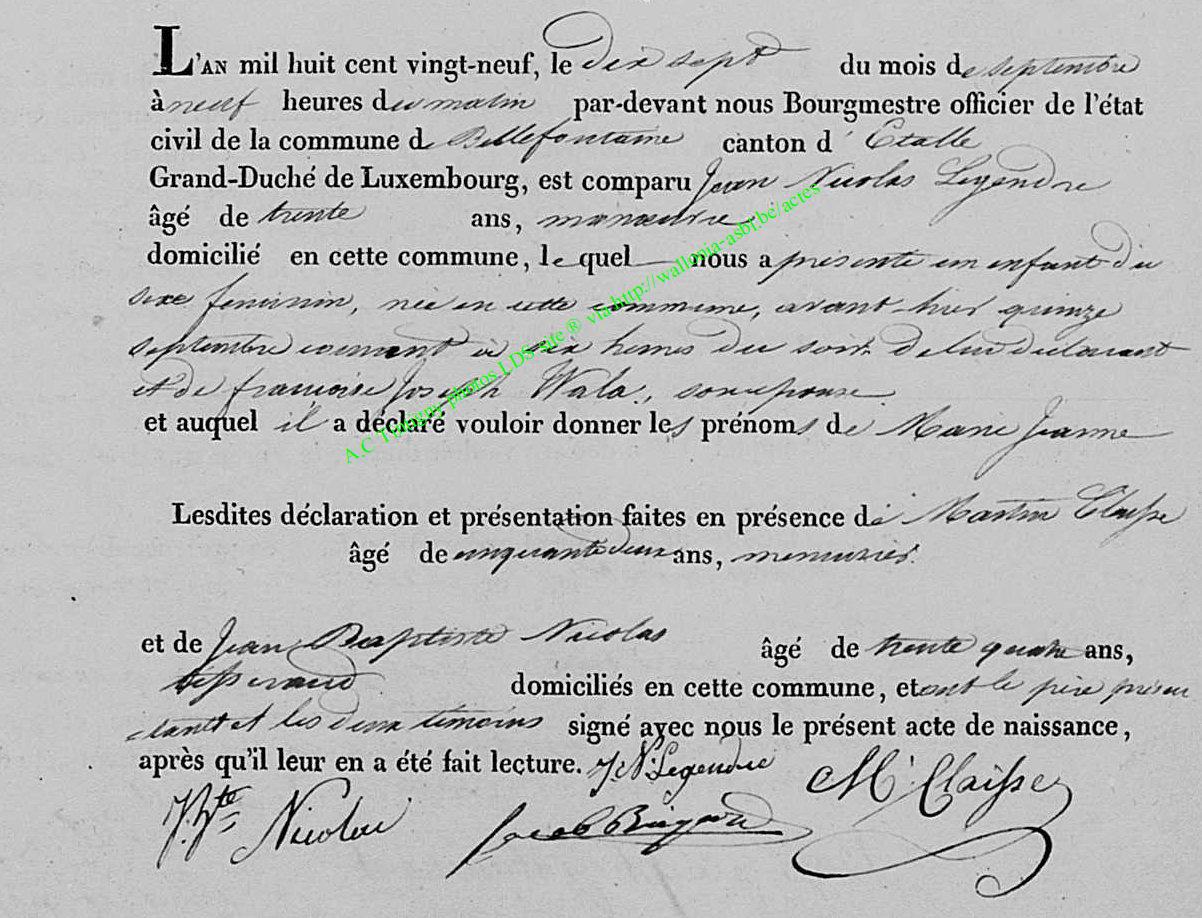 L'AN mil huit cent vingt-neuf, le dix sept du mois de septembre
à neuf heures du matin par-devant nous Bourgmestre officier de l'état
civil de la commune de Bellefontaine canton d'Etalle
Grand-Duché de Luxembourg, est comparu Jean Nicolas Legendre
âgé de trente ans, manoeuvre
domicilié en cette commune, le quel nous a présenté un enfant du
sexe feminin, née en cette commune, avant-hier quinze
septembre courant à six heures du soir. de lui declarant
et de françoise Joseph Wala, son epouse.
et auquel il a déclaré vouloir donner les prénoms de Marie Jeanne
Lesdites déclaration et présentation faites en présence de Martin Claisse
âgé de cinquante deux ans, menuisier.
et de Jean Baptiste Nicolas âgé de trente quatre ans,
tisserand domiciliés en cette commune, et ont le père présen
tant et les deux témoins signé avec nous le présent acte de naissance,
après qu'il leur en a été fait lecture. JN Legendre
M Claisse
J. Bte Nicolas
A.C Tintigny photos LDS-site ® via http://wallonia-asbl.be/actes